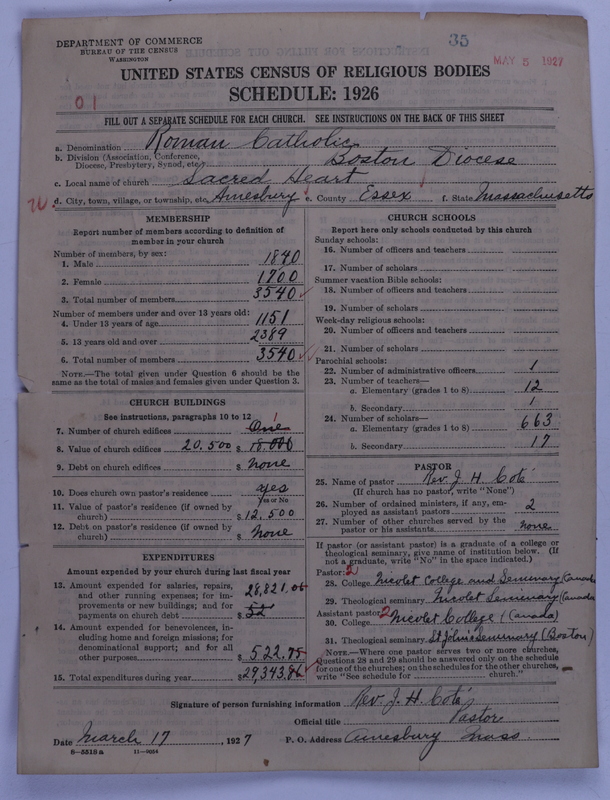 DEPARTMENT OF COMMERCE
BUREAU OF THE CENSUS
WASHINGTON
35
MAY 5 1927
UNITED STATES CENSUS OF RELIGIOUS BODIES
SCHEDULE: 1926
01
FILL OUT A SEPARATE SCHEDULE FOR EACH CHURCH. SEE INSTRUCTIONS ON THE BACK OF THIS SHEET
a. Denomination Roman Catholic
b. Division (Association, Conference,
Diocese, Presbytery, Synod, etc.) Boston Diocese
c. Local name of church Sacred Heart
d. City, town, village, or township, etc. Amesbury e. County Essex f. State Massachusetts
MEMBERSHIP
Report number of members according to definition of
member in your church
Number of members, by sex:
1. Male 1840
2. Female 1700
3. Total number of members 3540
Number of members under and over 13 years old:
4. Under 13 years of age 1151
5. 13 years old and over 2389
6. Total number of members 3540
NOTE.—The total given under Question 6 should be the
same as the total of males and females given under Question 3.
CHURCH BUILDINGS
See instructions, paragraphs 10 to 12
7. Number of church edifices One 1
8. Value of church edifices 20.500 $ 18.000
9. Debt on church edifices $ none
10. Does church own pastor's residence yes
Yes or No
11. Value of pastor's residence (if owned by
church) $ 12,500
12. Debt on pastor's residence (if owned by
church) $ none
EXPENDITURES
Amount expended by your church during last fiscal year
13. Amount expended for salaries, repairs,
and other running expenses; for im-
provements or new buildings; and for
payments on church debt $ 28,821.05
14. Amount expended for benevolences, in-
cluding home and foreign missions; for
denominational support; and for all
other purposes $ 522.75
15. Total expenditures during year $ 29,343.
CHURCH SCHOOLS
Report here only schools conducted by this church
Sunday schools:
16. Number of officers and teachers
17. Number of scholars
Summer vacation Bible schools:
18. Number of officers and teachers
19. Number of scholars
Week-day religious schools:
20. Number of officers and teachers
21. Number of scholars
Parochial schools:
22. Number of administrative officers 1
23. Number of teachers—
a. Elementary (grades 1 to 8) 12
b. Secondary 1
24. Number of scholars—
a. Elementary (grades 1 to 8) 663
b. Secondary 17
PASTOR
25. Name of pastor Rev. J. H. Coté
(If church has no pastor, write "None")
26. Number of ordained ministers, if any, em-
ployed as assistant pastors 2
27. Number of other churches served by the
pastor or his assistants none
If pastor (or assistant pastor) is a graduate of a college or
theological seminary, give name of institution below. (If
not a graduate, write "No" in the space indicated.)
Pastor: 2
28. College Nicolet College and Seminary (Canada
29. Theological seminary Nicolet Seminary (Canada
Assistant pastor: 2
30. College Nicolet College (Canada)
31. Theological seminary St John's Seminary (Boston)
NOTE.—Where one pastor serves two or more churches,
Questions 28 and 29 should be answered only on the schedule
for one of the churches; on the schedules for the other churches,
write "See schedule for church."
Signature of person furnishing information Rev. J. H. Coté
Official title Pastor
Date March 17, 1927 P. O. Address Amesbury Mass.
8—5518a 11—9054